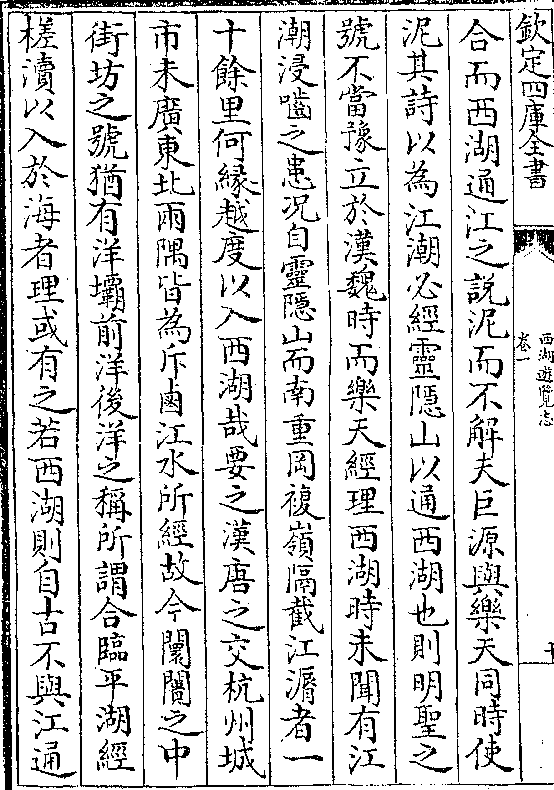 欽定四庫全書
西湖遊覽志
卷一
合而西湖通江之説泥而不解夫巨源與樂天同時使
泥其詩以為江潮必經靈隠山以通西湖也則明聖之
號不當豫立於漢魏時而樂天經理西湖時未聞有江
潮浸嚙之患况自靈隠山而南重岡複嶺隔截江滣者一
十餘里何緣越度以入西湖哉要之漢唐之交杭州城
市未廣東北兩隅皆為斥鹵江水所經故今闤闠之中
街坊之號猶有洋壩前洋後洋之稱所謂合臨平湖經
槎瀆以入於海者理或有之若西湖則自古不與江通